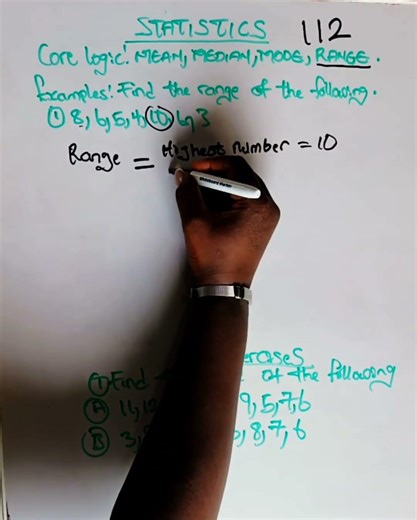 STATISTICS 112
Core logic: MEAN, MEDIAN, MODE, RANGE.
Examples: Find the range of the following.
① 8, 6, 5, 4, 10, 6, 3
Range = Highest number = 10
ercises
① Find of the following
Ⓐ 11, 12 9, 5, 7, 6
Ⓑ 3, 8, 7, 6